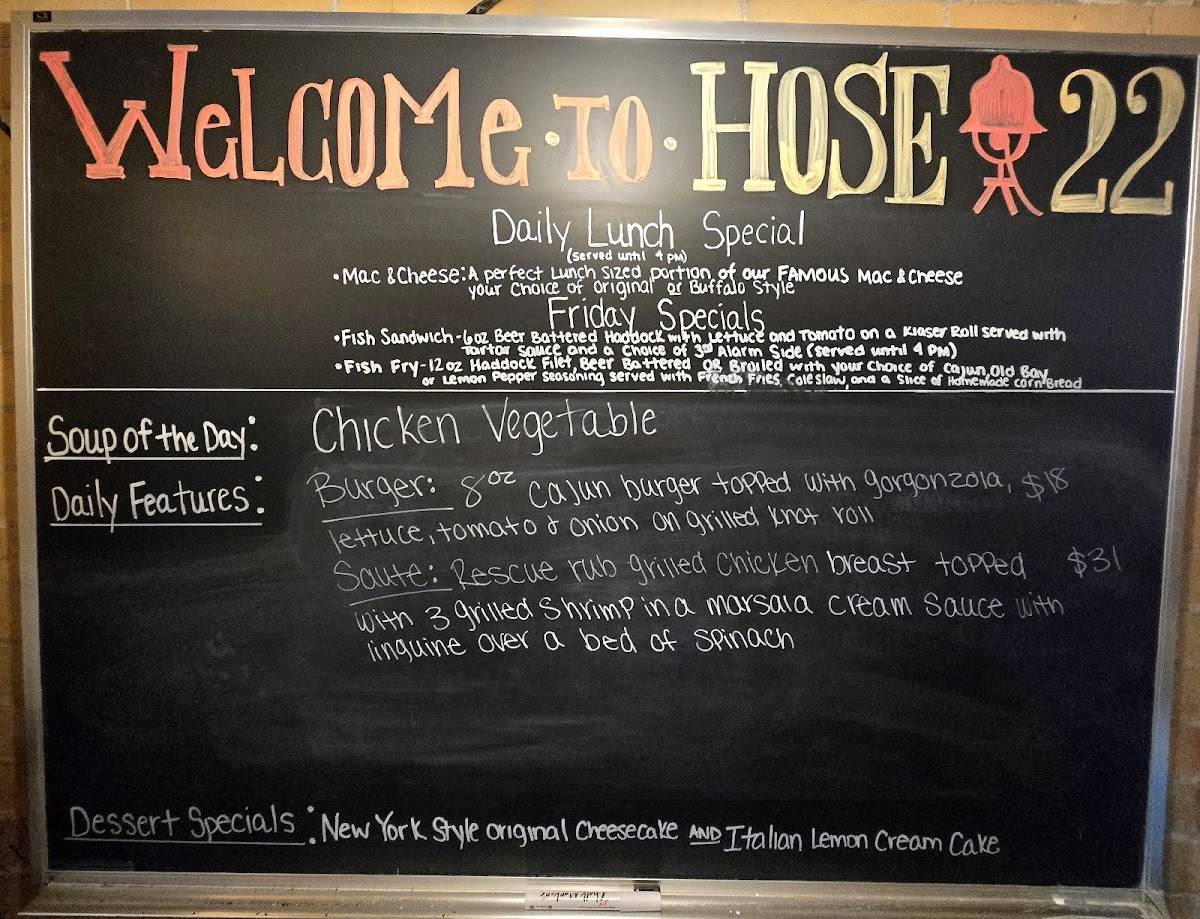 WELCOME·TO·HOSE 22
Daily Lunch Special
(Served until 4 PM)
•Mac & Cheese: A perfect Lunch Sized portion of our FAMOUS Mac & Cheese
your Choice of Original or Buffalo Style
Friday Specials
•Fish Sandwich-6oz Beer Battered Haddock with Lettuce and Tomato on a Kiaser Roll served with
Tartar Sauce and a Choice of 3rd Alarm Side (served until 4 PM)
•Fish Fry-12oz Haddock Filet, Beer Battered OR Broiled with your Choice of Cajun, Old Bay
or Lemon Pepper Seasoning served with French Fries, Cole Slaw, and a Slice of Homemade Corn Bread
Soup of the Day: Chicken Vegetable
Daily Features: Burger: 8oz Cajun burger topped with gorgonzola, $18
lettuce, tomato & onion on grilled knot roll
Saute: Rescue rub grilled chicken breast topped $31
with 3 grilled shrimp in a marsala cream sauce with
linguine over a bed of spinach
Dessert Specials: New York Style Original Cheesecake AND Italian Lemon Cream Cake